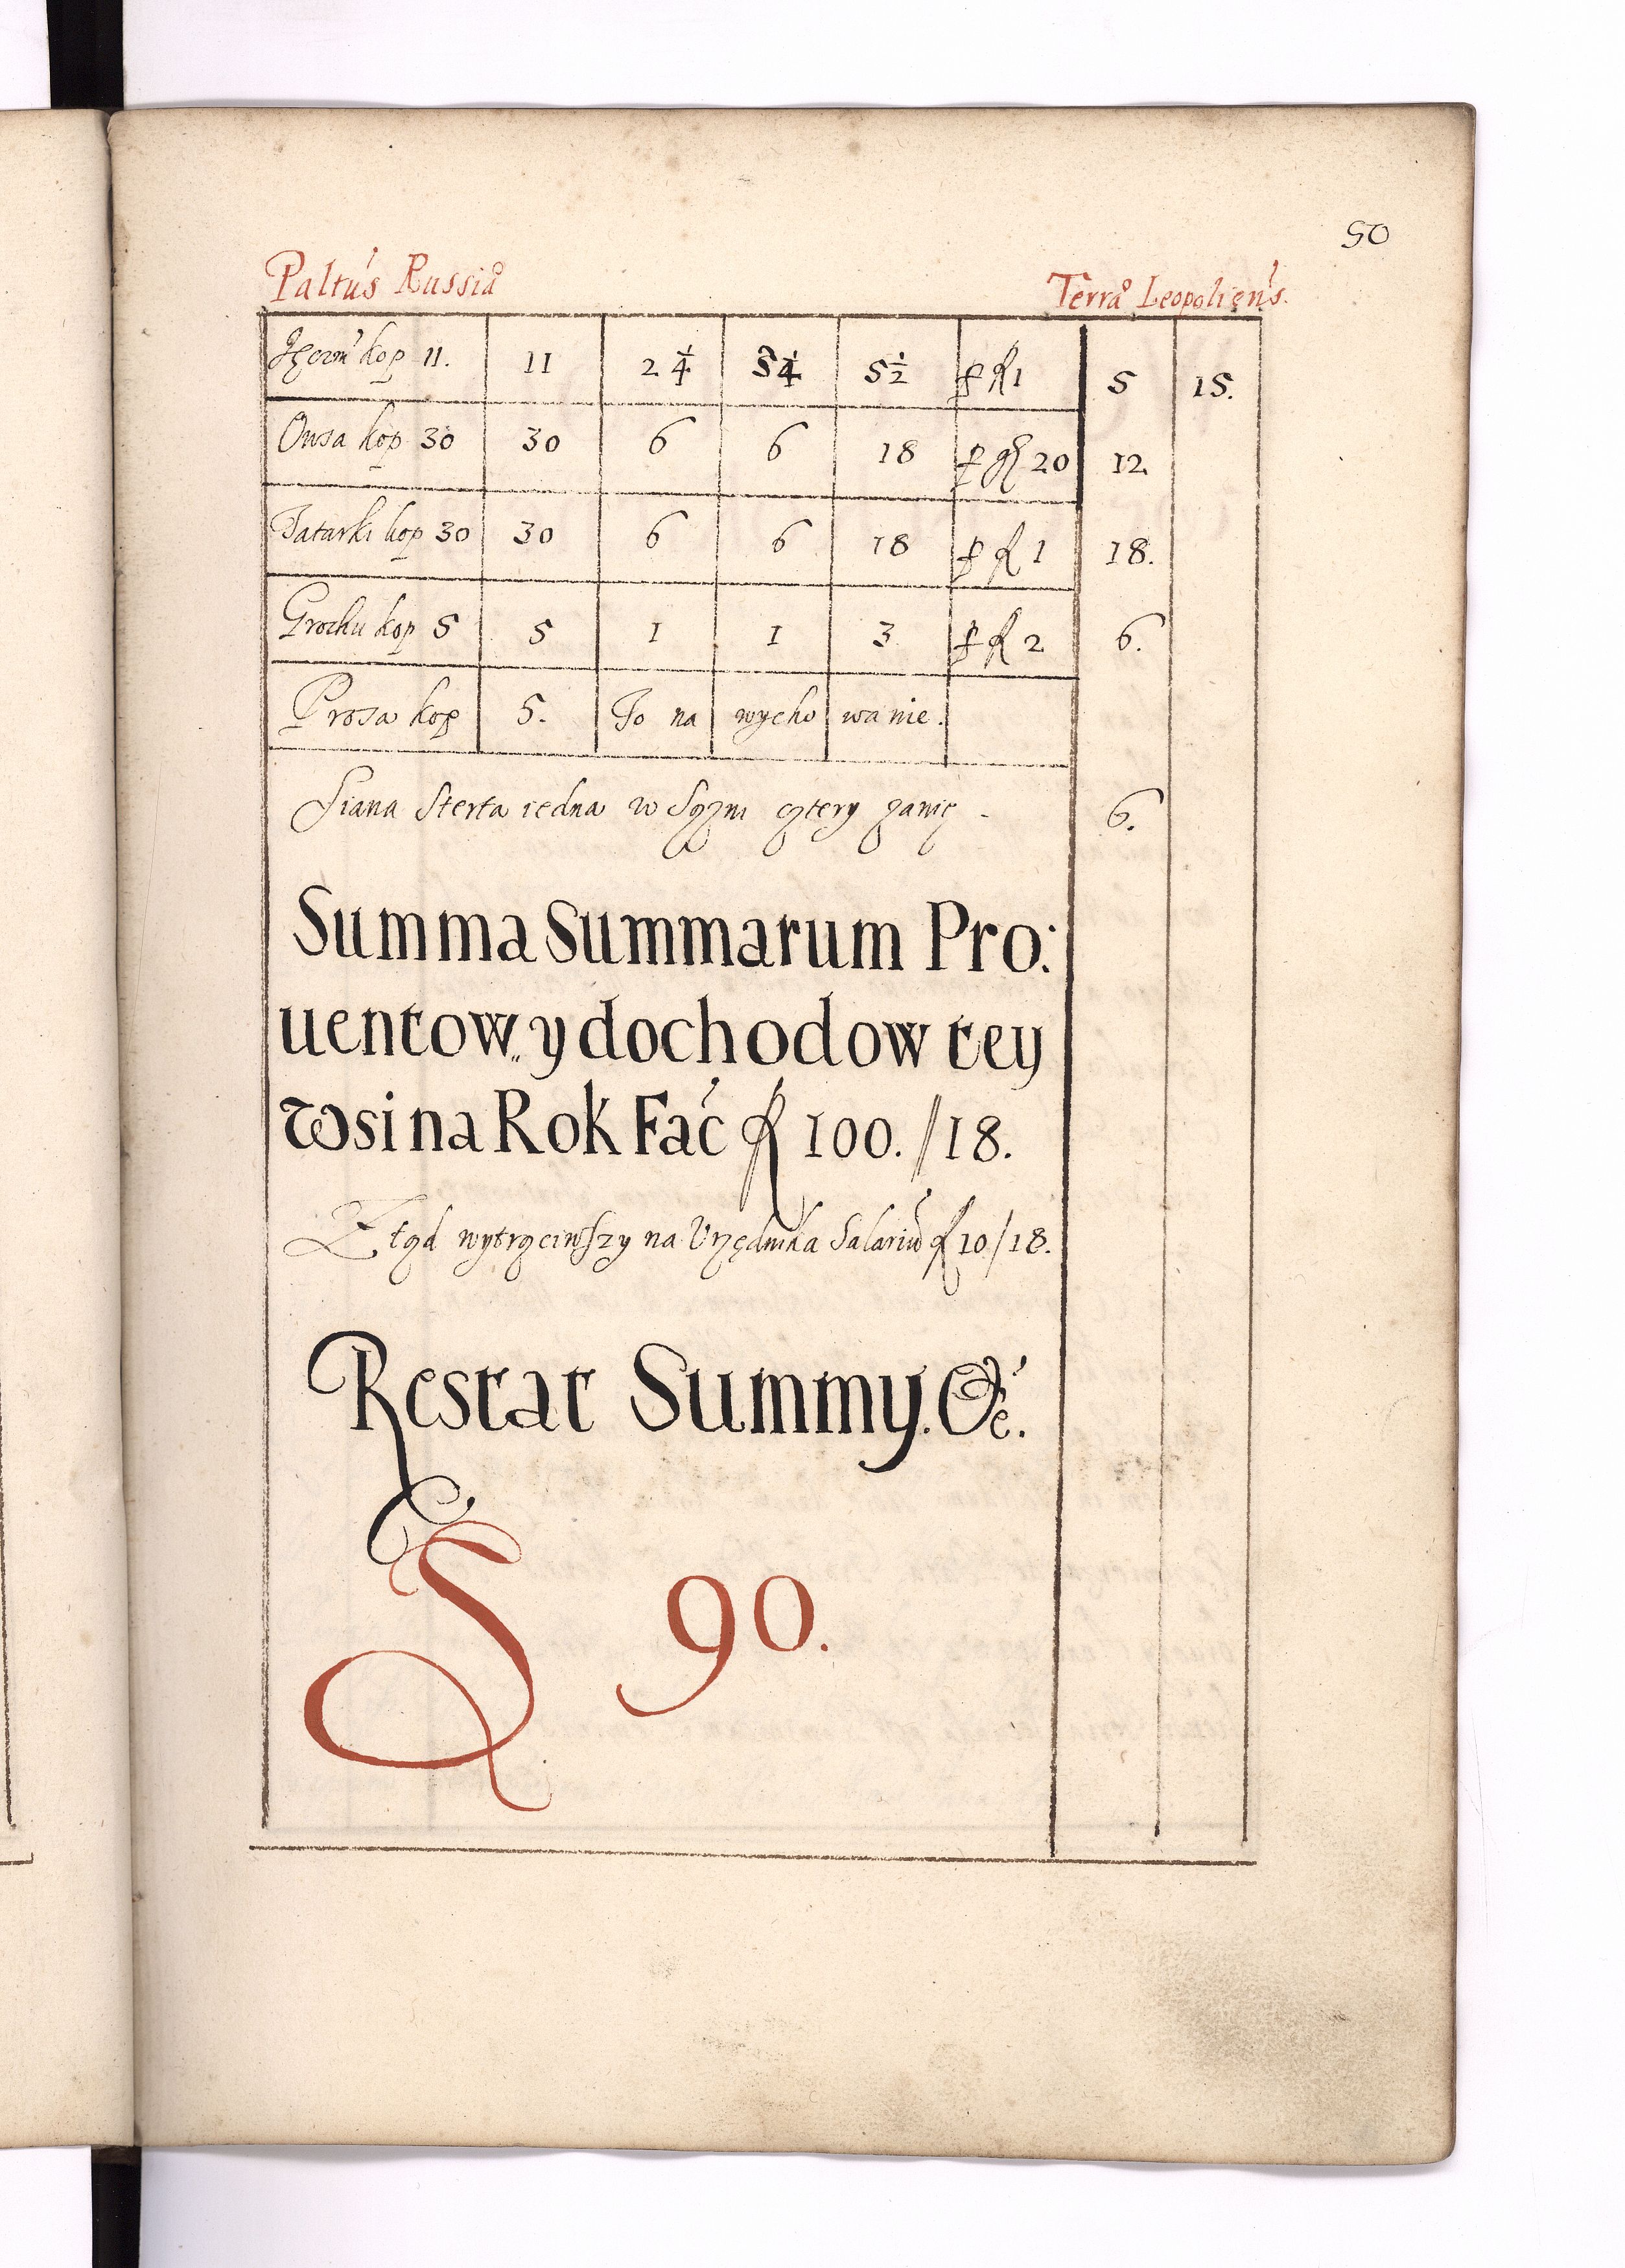 50
Paltús Russiæ Terræ Leopolień́s.
Jęczm̃ kop 11. 11 2 1/4 3 1/4 5 1/2 p fl 1 5 15.
Owsa kop 30 30 6 6 18 p gr 20 12
Tatarki kop 30 30 6 6 18 p fl 1 18.
Grochu kop 5 5 1 1 3 p fl 2 6.
Prosa kop 5. To na wycho wanie.
Siana Sterta iedna w Sążni cztery zanię 6.
Summa Summarum Pro:
uentow y dochodow tey
wsi na Rok Fać fl 100. // 18.
Ztąd wytrąciwszy na Urzędnika Salariũ fl 10/18.
Restat Summy. &c.
fl 90.